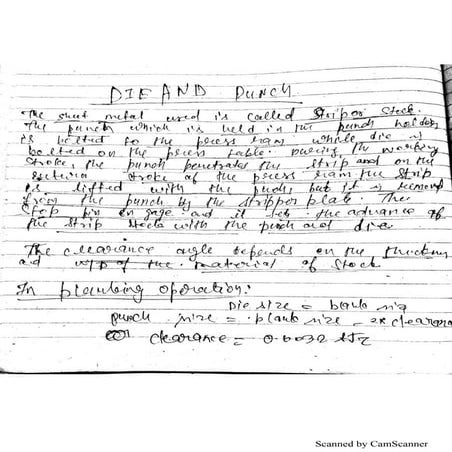 DIE AND PUNCH
The sheet metal used is called Strip or Stock.
The punch which is held in the punch holder
is bolted to the press ram while die is
bolted on the press table. During the working
stroke, the punch penetrates the strip and on the
return stroke of the press ram the strip
is lifted with the punch, but it is removed
from the punch by the stripper plate. The
stop pin en gage and it sets the advance of
the strip stock with the punch and die
The clearance angle depends on the
and of the material of stock
In blanking operation:
Die size = blank size
punch size = blank size - 2x clearance
clearance = 0.0032
Scanned by CamScanner